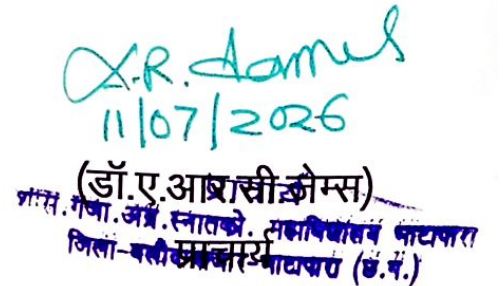 A.R. James
11/07/2026
(डॉ.ए.आर.सी.जेम्स)
प्राचार्य
शास. गजा. अग्र. स्नातको. महाविद्यालय भाटापारा
जिला-बलौदाबाजार-भाटापारा (छ.ग.)